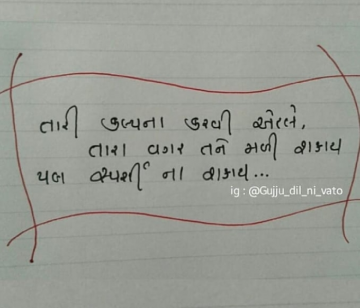 તારી કલ્પના કરવી એટલે,
તારા વગર તને મળી શકાય
પણ સ્પર્શી ના શકાય...
ig : @Gujju_dil_ni_vato